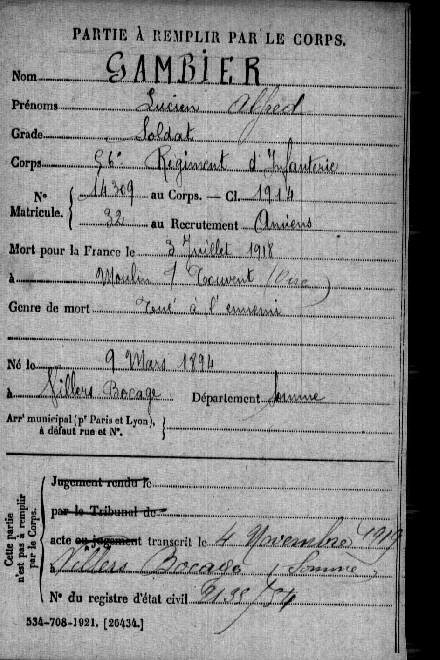 PARTIE À REMPLIR PAR LE CORPS.
Nom GAMBIER
Prénoms Lucien Alfred
Grade Soldat
Corps 56e Régiment d'Infanterie
No Matricule. { 14309 au Corps. — Cl. 1914
32 au Recrutement Amiens
Mort pour la France le 3 Juillet 1918
à Moulin s/ Touvent (Oise)
Genre de mort Tué à l'ennemi
Né le 9 Mars 1894
à Villers Bocage Département Somme
Arrt municipal (pr Paris et Lyon), à défaut rue et No.
Cette partie n'est pas à remplir par le Corps.
Jugement rendu le
par le Tribunal de
acte ou jugement transcrit le 4 Novembre 1919
à Villers Bocage (Somme)
No du registre d'état civil
534-708-1921. [26434.]